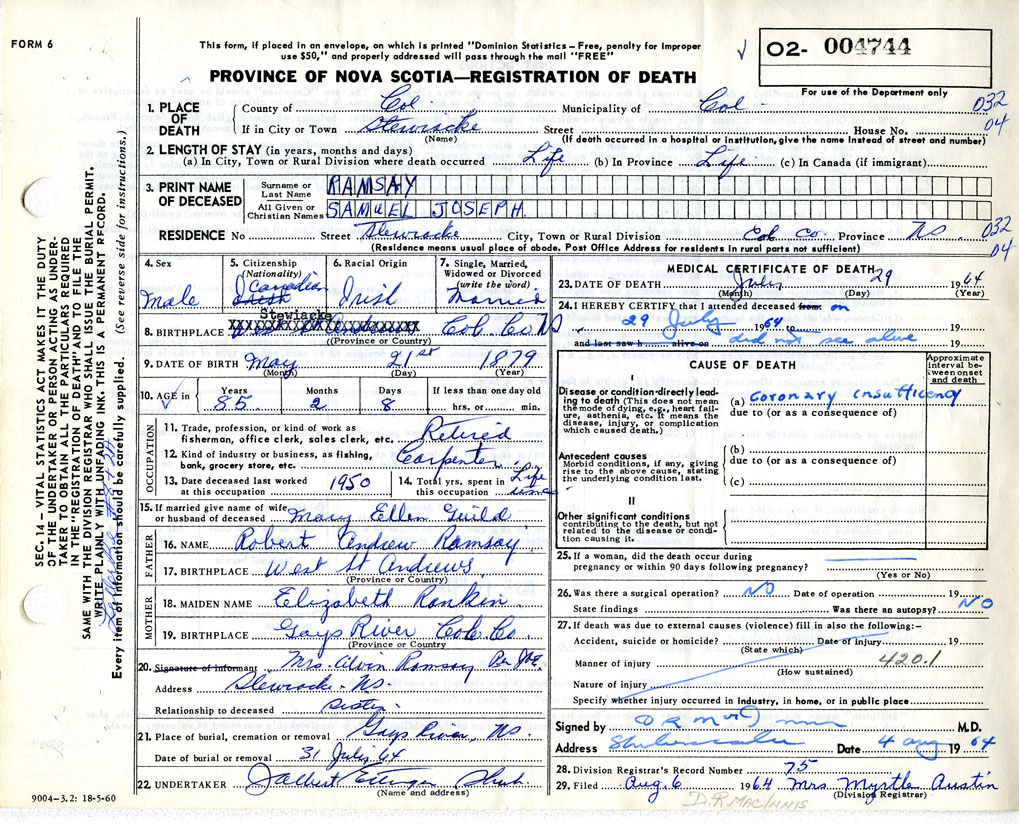 FORM 6
This form, if placed in an envelope, on which is printed "Dominion Statistics – Free, penalty for improper
use $50," and properly addressed will pass through the mail "FREE"
O2- 004744
For use of the Department only
PROVINCE OF NOVA SCOTIA—REGISTRATION OF DEATH
1. PLACE OF DEATH
County of Col. Municipality of Col. 032
If in City or Town Stewiacke Street House No. 04
(Name) (If death occurred in a hospital or institution, give the name instead of street and number)
2. LENGTH OF STAY (in years, months and days)
(a) In City, Town or Rural Division where death occurred Life (b) In Province Life (c) In Canada (if immigrant)
3. PRINT NAME OF DECEASED
Surname or Last Name RAMSAY
All Given or Christian Names SAMUEL JOSEPH
RESIDENCE No Street Stewiacke City, Town or Rural Division Col. Co. Province N.S. 032
(Residence means usual place of abode. Post Office Address for residents in rural parts not sufficient) 04
4. Sex Male
5. Citizenship (Nationality) Canadian Irish
6. Racial Origin Irish
7. Single, Married, Widowed or Divorced (write the word) Married
Stewiacke
8. BIRTHPLACE Col. Co. N.S.
(Province or Country)
9. DATE OF BIRTH May 21st 1879
(Month) (Day) (Year)
10. AGE in Years 85 Months 2 Days 8 If less than one day old hrs. or min.
OCCUPATION
11. Trade, profession, or kind of work as
fisherman, office clerk, sales clerk, etc. Retired
12. Kind of industry or business, as fishing,
bank, grocery store, etc. Carpenter
13. Date deceased last worked
at this occupation 1950
14. Total yrs. spent in
this occupation Life
15. If married give name of wife
or husband of deceased Mary Ellen Guild
FATHER
16. NAME Robert Andrew Ramsay
17. BIRTHPLACE West St Andrews
(Province or Country)
MOTHER
18. MAIDEN NAME Elizabeth Rankin
19. BIRTHPLACE Gays River Col. Co.
(Province or Country
20. Signature of informant Mrs. Alvin Ramsay Per
Address Stewiacke N.S.
Relationship to deceased Sister
21. Place of burial, cremation or removal Gays River, N.S.
Date of burial or removal 31 July 64
22. UNDERTAKER Ettinger
(Name and address)
9004-3.2: 18-5-60
MEDICAL CERTIFICATE OF DEATH
23. DATE OF DEATH July 29 1964
(Month) (Day) (Year)
24. I HEREBY CERTIFY that I attended deceased from on
29 July 1964 to 19
and last saw h alive on did not see alive 19
CAUSE OF DEATH
Approximate interval between onset and death
I
Disease or condition directly leading to death (This does not mean the mode of dying, e.g., heart failure, asthenia, etc. It means the disease, injury, or complication which caused death.)
(a) Coronary insufficency
due to (or as a consequence of)
Antecedent causes
Morbid conditions, if any, giving rise to the above cause, stating the underlying condition last.
(b)
due to (or as a consequence of)
(c)
II
Other significant conditions
contributing to the death, but not related to the disease or condition causing it.
25. If a woman, did the death occur during
pregnancy or within 90 days following pregnancy?
(Yes or No)
26. Was there a surgical operation? NO Date of operation 19
State findings Was there an autopsy? NO
27. If death was due to external causes (violence) fill in also the following:–
Accident, suicide or homicide? Date of injury 19
(State which)
Manner of injury 420.1
(How sustained)
Nature of injury
Specify whether injury occurred in industry, in home, or in public place
Signed by M.D.
Address Date 4 Aug 1964
28. Division Registrar's Record Number 75
29. Filed Aug. 6 1964 Mrs Myrtle Austin
(Division Registrar)
D.R. MACINNIS
SEC. 14 – VITAL STATISTICS ACT MAKES IT THE DUTY
OF THE UNDERTAKER OR PERSON ACTING AS UNDER-
TAKER TO OBTAIN ALL THE PARTICULARS REQUIRED
IN THE "REGISTRATION OF DEATH" AND TO FILE THE
SAME WITH THE DIVISION REGISTRAR WHO SHALL ISSUE THE BURIAL PERMIT.
WRITE PLAINLY WITH UNFADING INK. THIS IS A PERMANENT RECORD.
Every item of information should be carefully supplied. (See reverse side for instructions.)